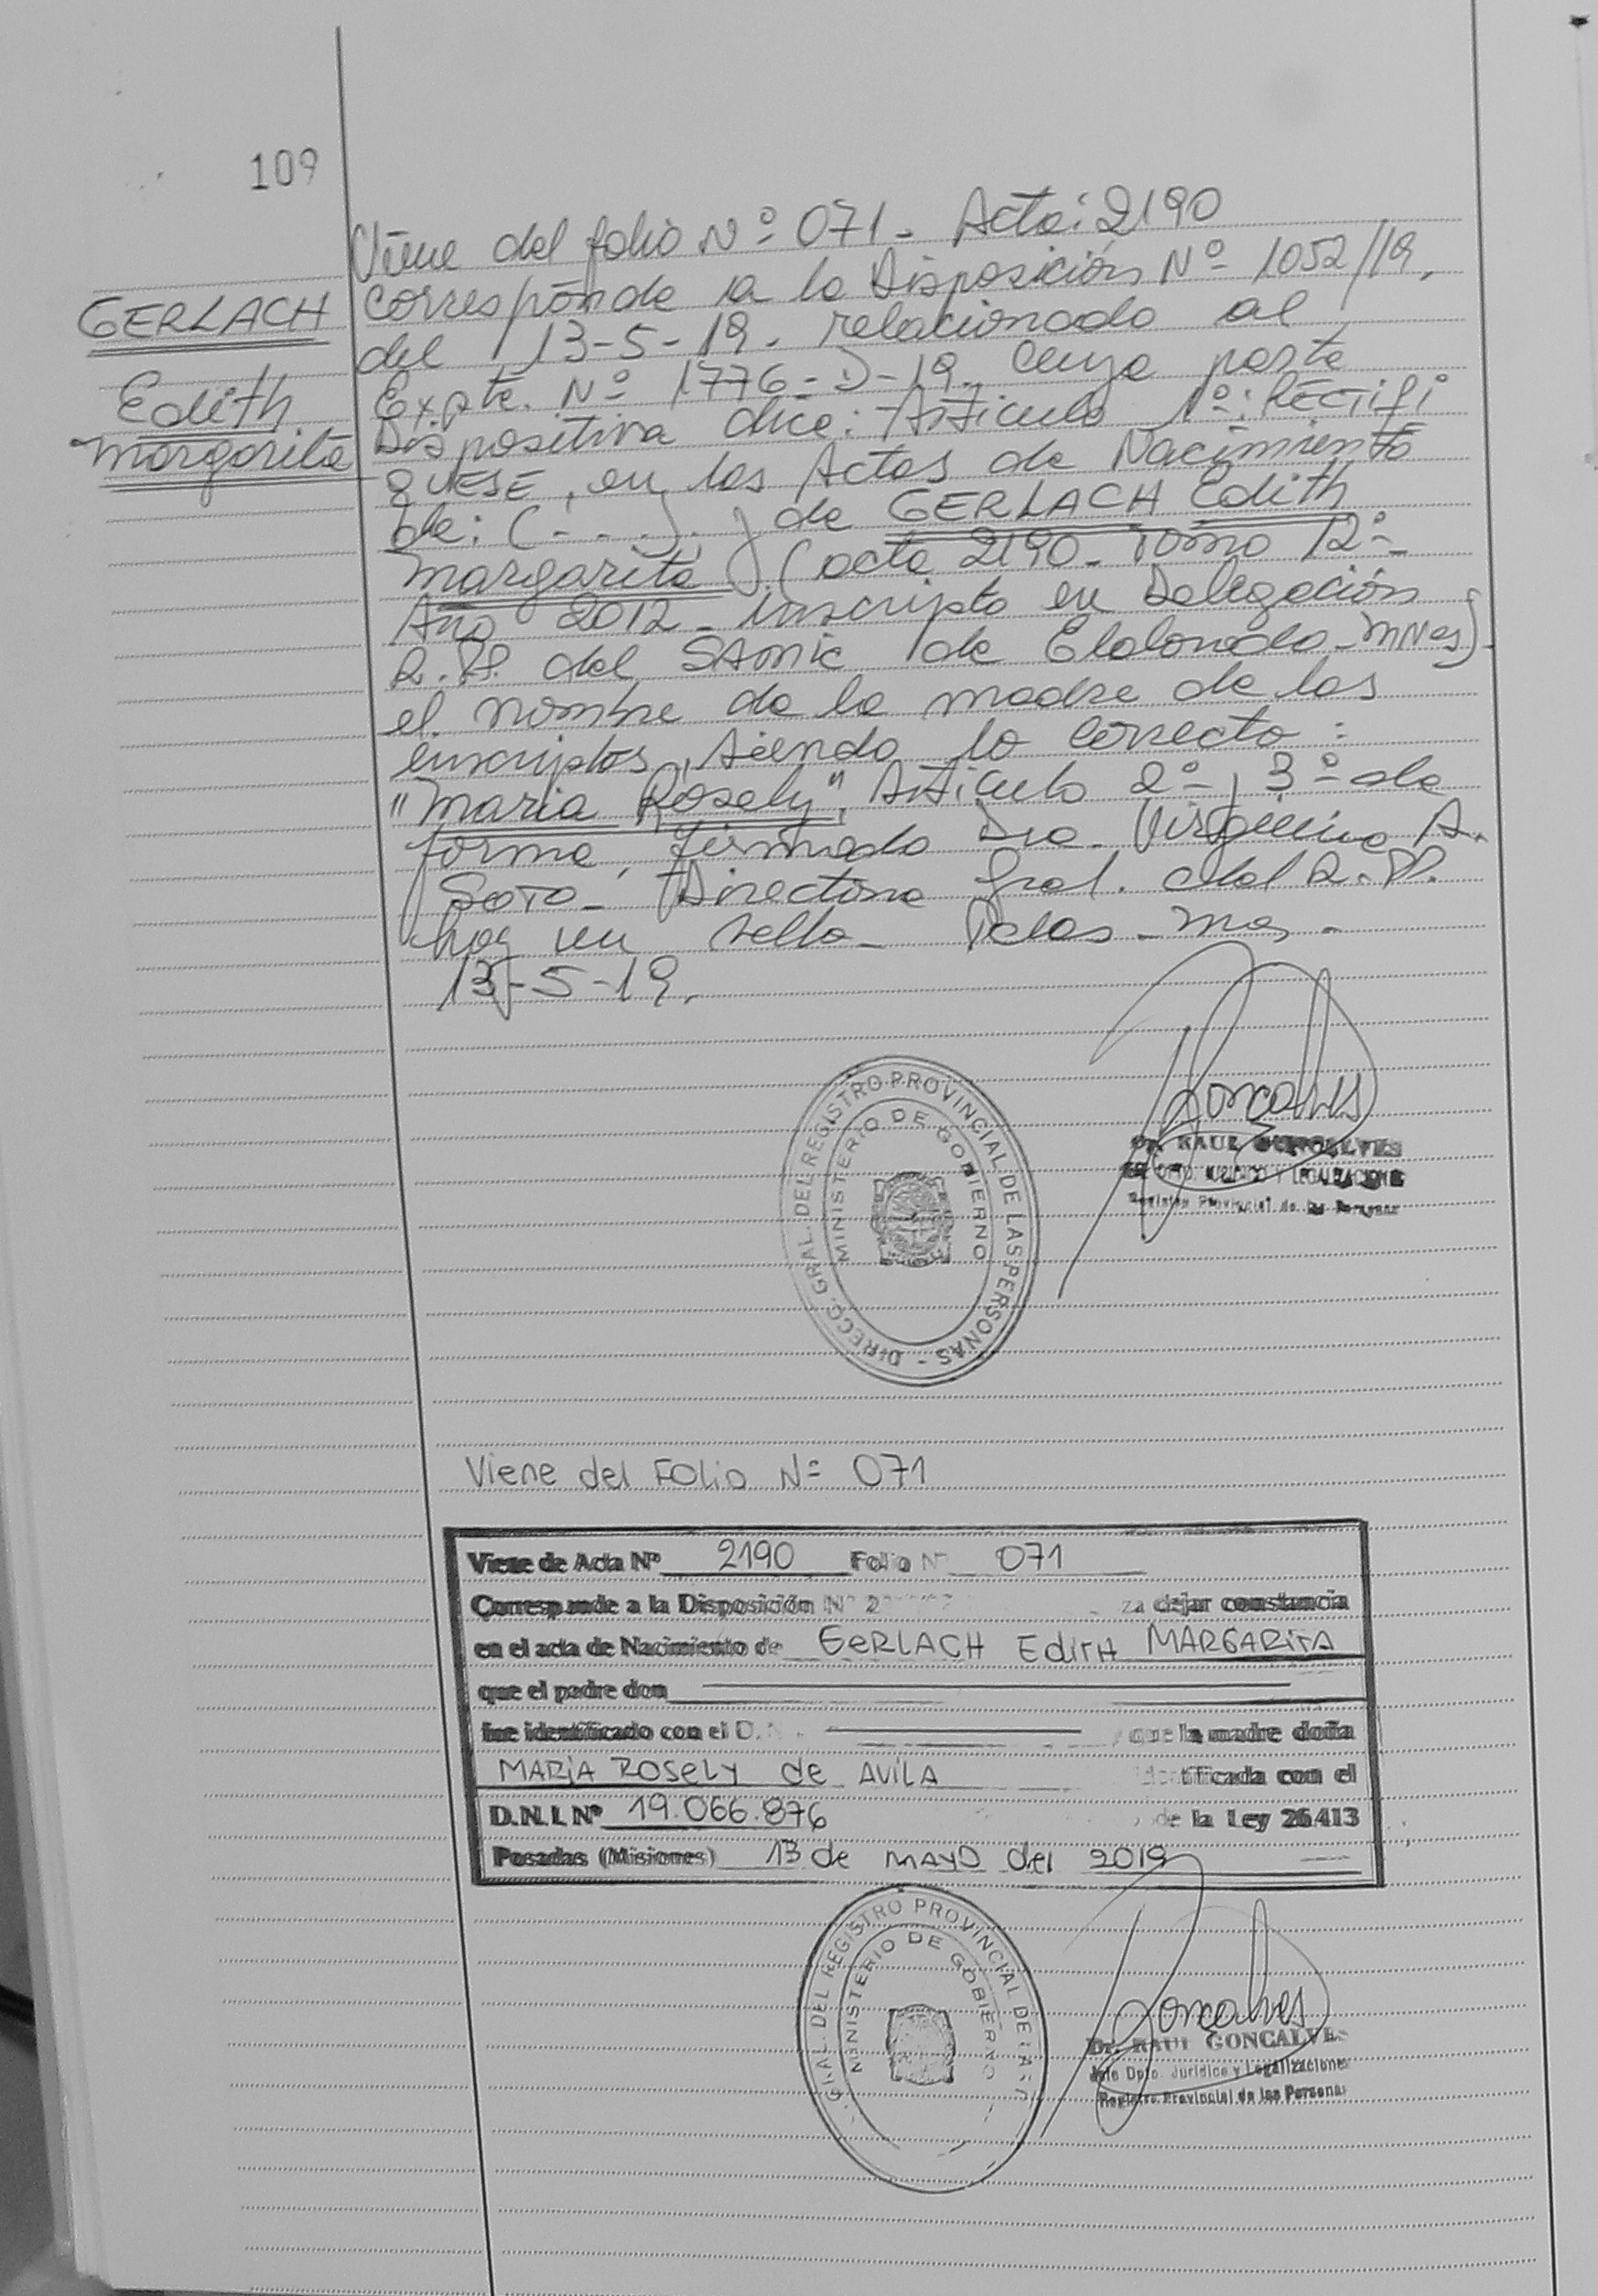 109
GERLACH
Edith
Margarita
Viene del folio Nº 071 - Acta: 2190
corresponde a la Disposición Nº 1052/19,
del 13-5-19. relacionado al
Expte. Nº 1776-D-19. cuya parte
Dispositiva dice: Artículo 1º: RECTIFI
QUESE, en las Actas de Nacimiento
de: (- - -). y de GERLACH Edith
Margarita (acta 2190 - Tomo 12º-
Año 2012 - inscripta en Delegación
R.P. del SAMIC de Eldorado - MNes)-
el nombre de la madre de los
inscriptos, siendo lo correcto:
"Maria Rosely". Artículo 2º, 3º de
forma, firmado Dra. Virginia A.
SOTO - Directora Gral. del R.P.
hay un sello - Pdas - Mnes -
13-5-19.
DIRECC. GRAL. DEL REGISTRO PROVINCIAL DE LAS PERSONAS -
MINISTERIO DE GOBIERNO
Goncalves
Dr. RAUL GONCALVES
DPTO. JURIDICO Y LEGALIZACIONES
Registro Provincial de las Personas
Viene del Folio Nº 071
Viene de Acta Nº 2190 Folio Nº 071
Corresponde a la Disposición Nº 2 za dejar constancia
en el acta de Nacimiento de GERLACH EdiTH MARGARITA
que el padre don
fue identificado con el D.N. que la madre doña
MARIA ROSELY de AVILA tificada con el
D.N.I. Nº 19.066.876 de la Ley 26413
Posadas (Misiones) 13 de MAYO del 2019
GRAL. DEL REGISTRO PROVINCIAL DE LAS
MINISTERIO DE GOBIERNO
Goncalves
Dr. RAUL GONCALVES
Jefe Dpto. Jurídico y Legalizaciones
Registro Provincial de las Personas